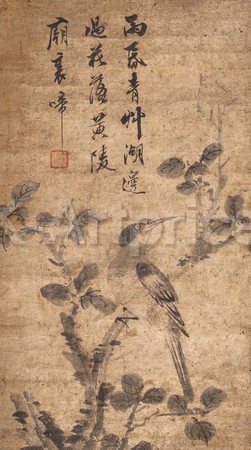 雨昏青艸湖邊
過花落黃陵
廟裏啼